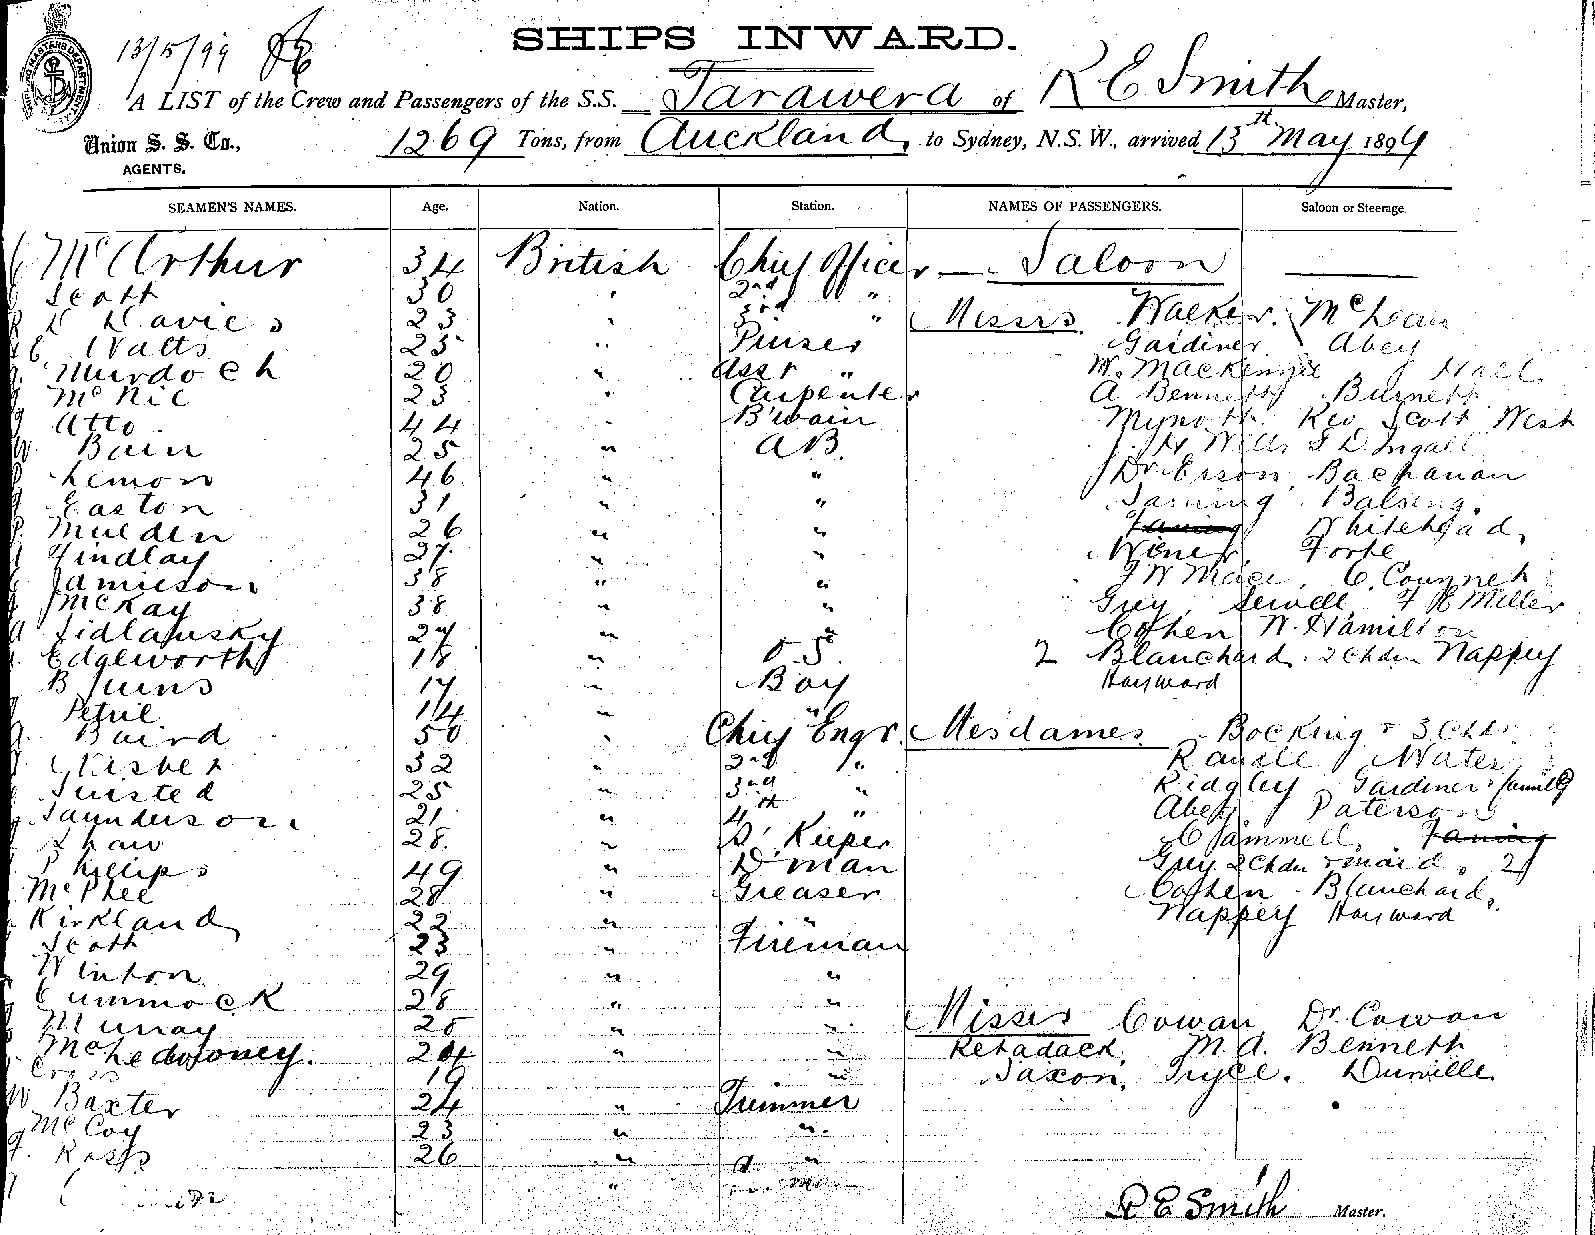 13/5/99
SHIPS INWARD.
A LIST of the Crew and Passengers of the S.S. Tarawera of R E Smith Master,
Union S. S. Co., 1269 Tons, from Auckland, to Sydney, N.S.W., arrived 13th May 1899
AGENTS.
SEAMEN'S NAMES. Age. Nation. Station. NAMES OF PASSENGERS. Saloon or Steerage.
McArthur 34 British Chief Officer — Saloon
Scott 30 " 2nd "
D Davies 23 " 3rd " Messrs. Walker. McLean
Watts 25 " Purser Gardiner Abey
Murdoch 20 " Asst " W. Mackenzie Hall
McNic 23 " Carpenter A Bennett Burnett
Atto 44 " B'swain Mynott. Rev Scott West
W. Bain 25 " AB. Wills S D Ingall
Lemon 46 " " Dr Erson, Buchanan
Easton 31 " "
Mulden 26 " " Whitehead,
Findlay 27 " " Forbe
Jamieson 38 " "
McKay 38 " " Guy, Sewell, F H Miller
Sidlansky 27 " " Cohen W. Hamilton
Edgeworth 18 " O.S. 2 Blanchard. 2 Chdn Nappey
17 " Boy Hayward
Petrie 14 " "
Baird 50 " Chief Engr. Mesdames Bocking & 3 Chdn
32 " 2nd " Randle
25 " 3rd " Ridgley Gardiner & family
Saunderson 21 " 4th " Abey Paterson
Shaw 28. " D' Keeper C Jammell,
Phillips 49 " D'man Guy 2 Chdn & maid, 2
McPhee 28 " Greaser Cohen Blanchard,
Kirkland 22 " " Nappey Hayward
Scott 23 " Fireman
Winton 29 " "
Cummock 28 " "
Murray 25 " " Misses Cowan, Dr. Cowan
24 " " M. A. Bennett
19 " Saxon, Dunille
W Baxter 24 " Trimmer
McCoy 23 " "
Ross 26 " "
"
R E Smith Master.